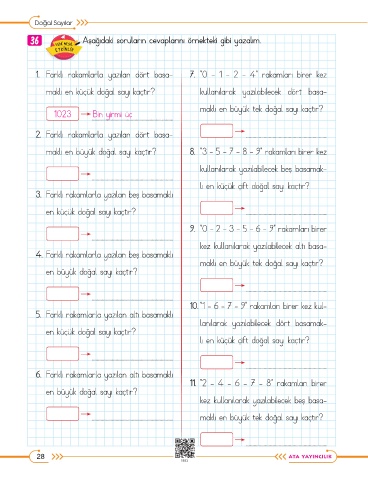 Doğal Sayılar
36
Aşağıdaki soruların cevaplarını örnekteki gibi yazalım.
1. Farklı rakamlarla yazılan dört basa-
maklı en küçük doğal sayı kaçtır?
1023 → Bin yirmi üç
2. Farklı rakamlarla yazılan dört basa-
maklı en büyük doğal sayı kaçtır?
3. Farklı rakamlarla yazılan beş basamaklı
en küçük doğal sayı kaçtır?
4. Farklı rakamlarla yazılan beş basamaklı
en büyük doğal sayı kaçtır?
5. Farklı rakamlarla yazılan altı basamaklı
en küçük doğal sayı kaçtır?
6. Farklı rakamlarla yazılan altı basamaklı
en büyük doğal sayı kaçtır?
7. "0 - 1 - 2 - 4" rakamları birer kez
kullanılarak yazılabilecek dört basa-
maklı en büyük tek doğal sayı kaçtır?
8. "3 - 5 - 7 - 8 - 9" rakamları birer kez
kullanılarak yazılabilecek beş basamak-
lı en küçük çift doğal sayı kaçtır?
9. "0 - 2 - 3 - 5 - 6 - 9" rakamları birer
kez kullanılarak yazılabilecek altı basa-
maklı en büyük tek doğal sayı kaçtır?
10. "1 - 6 - 7 - 9" rakamları birer kez kul-
lanılarak yazılabilecek dört basamak-
lı en küçük çift doğal sayı kaçtır?
11. "2 - 4 - 6 - 7 - 8" rakamları birer
kez kullanılarak yazılabilecek beş basa-
maklı en büyük tek doğal sayı kaçtır?
28
ATA YAYINCILIK